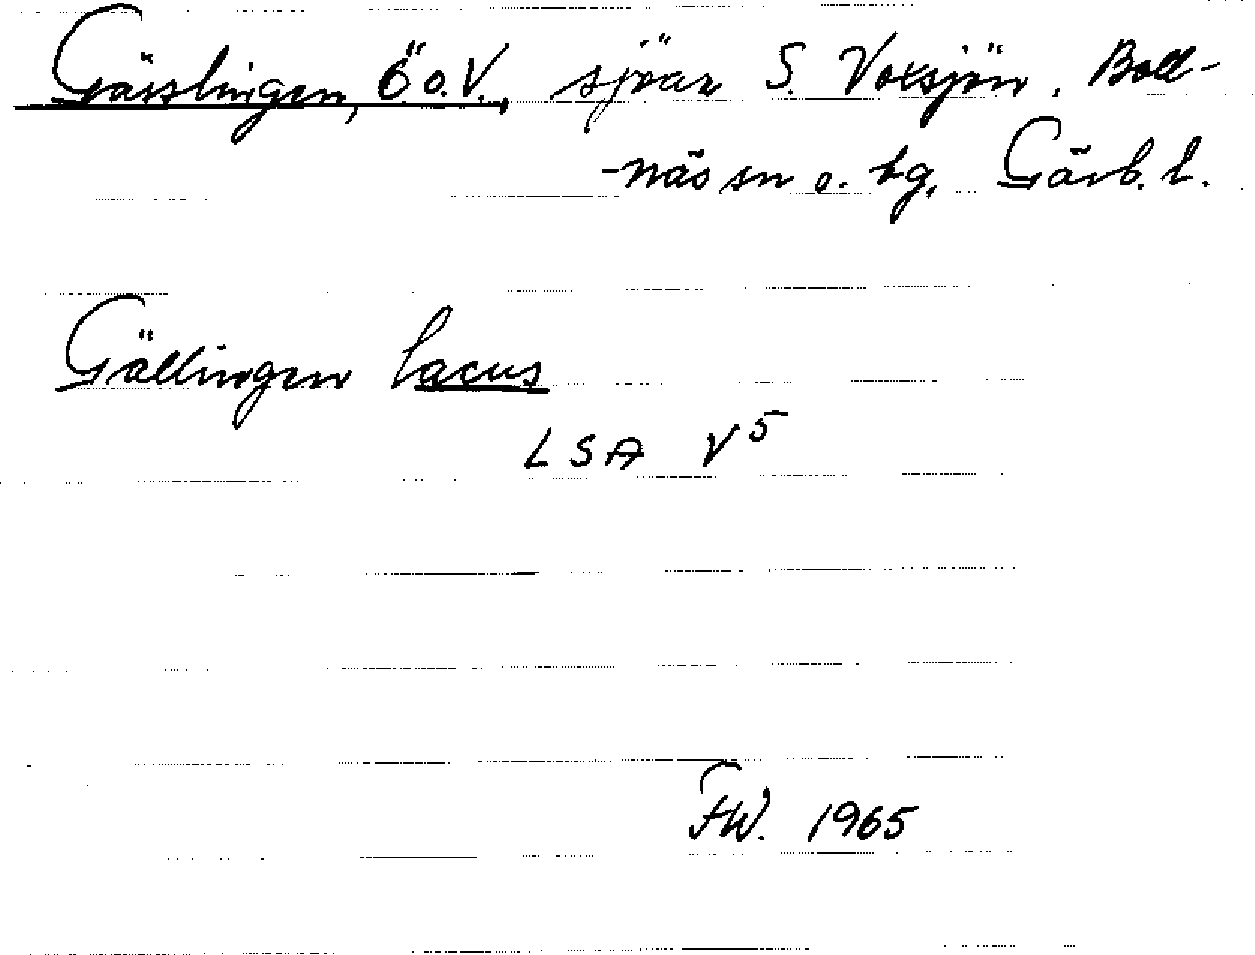 Gässlingen, Ö o. V., sjöar S. Voxsjön. Boll-
-näs sn o. tg, Gävb. l.
Gällingen lacus
LSA V5
FW. 1965